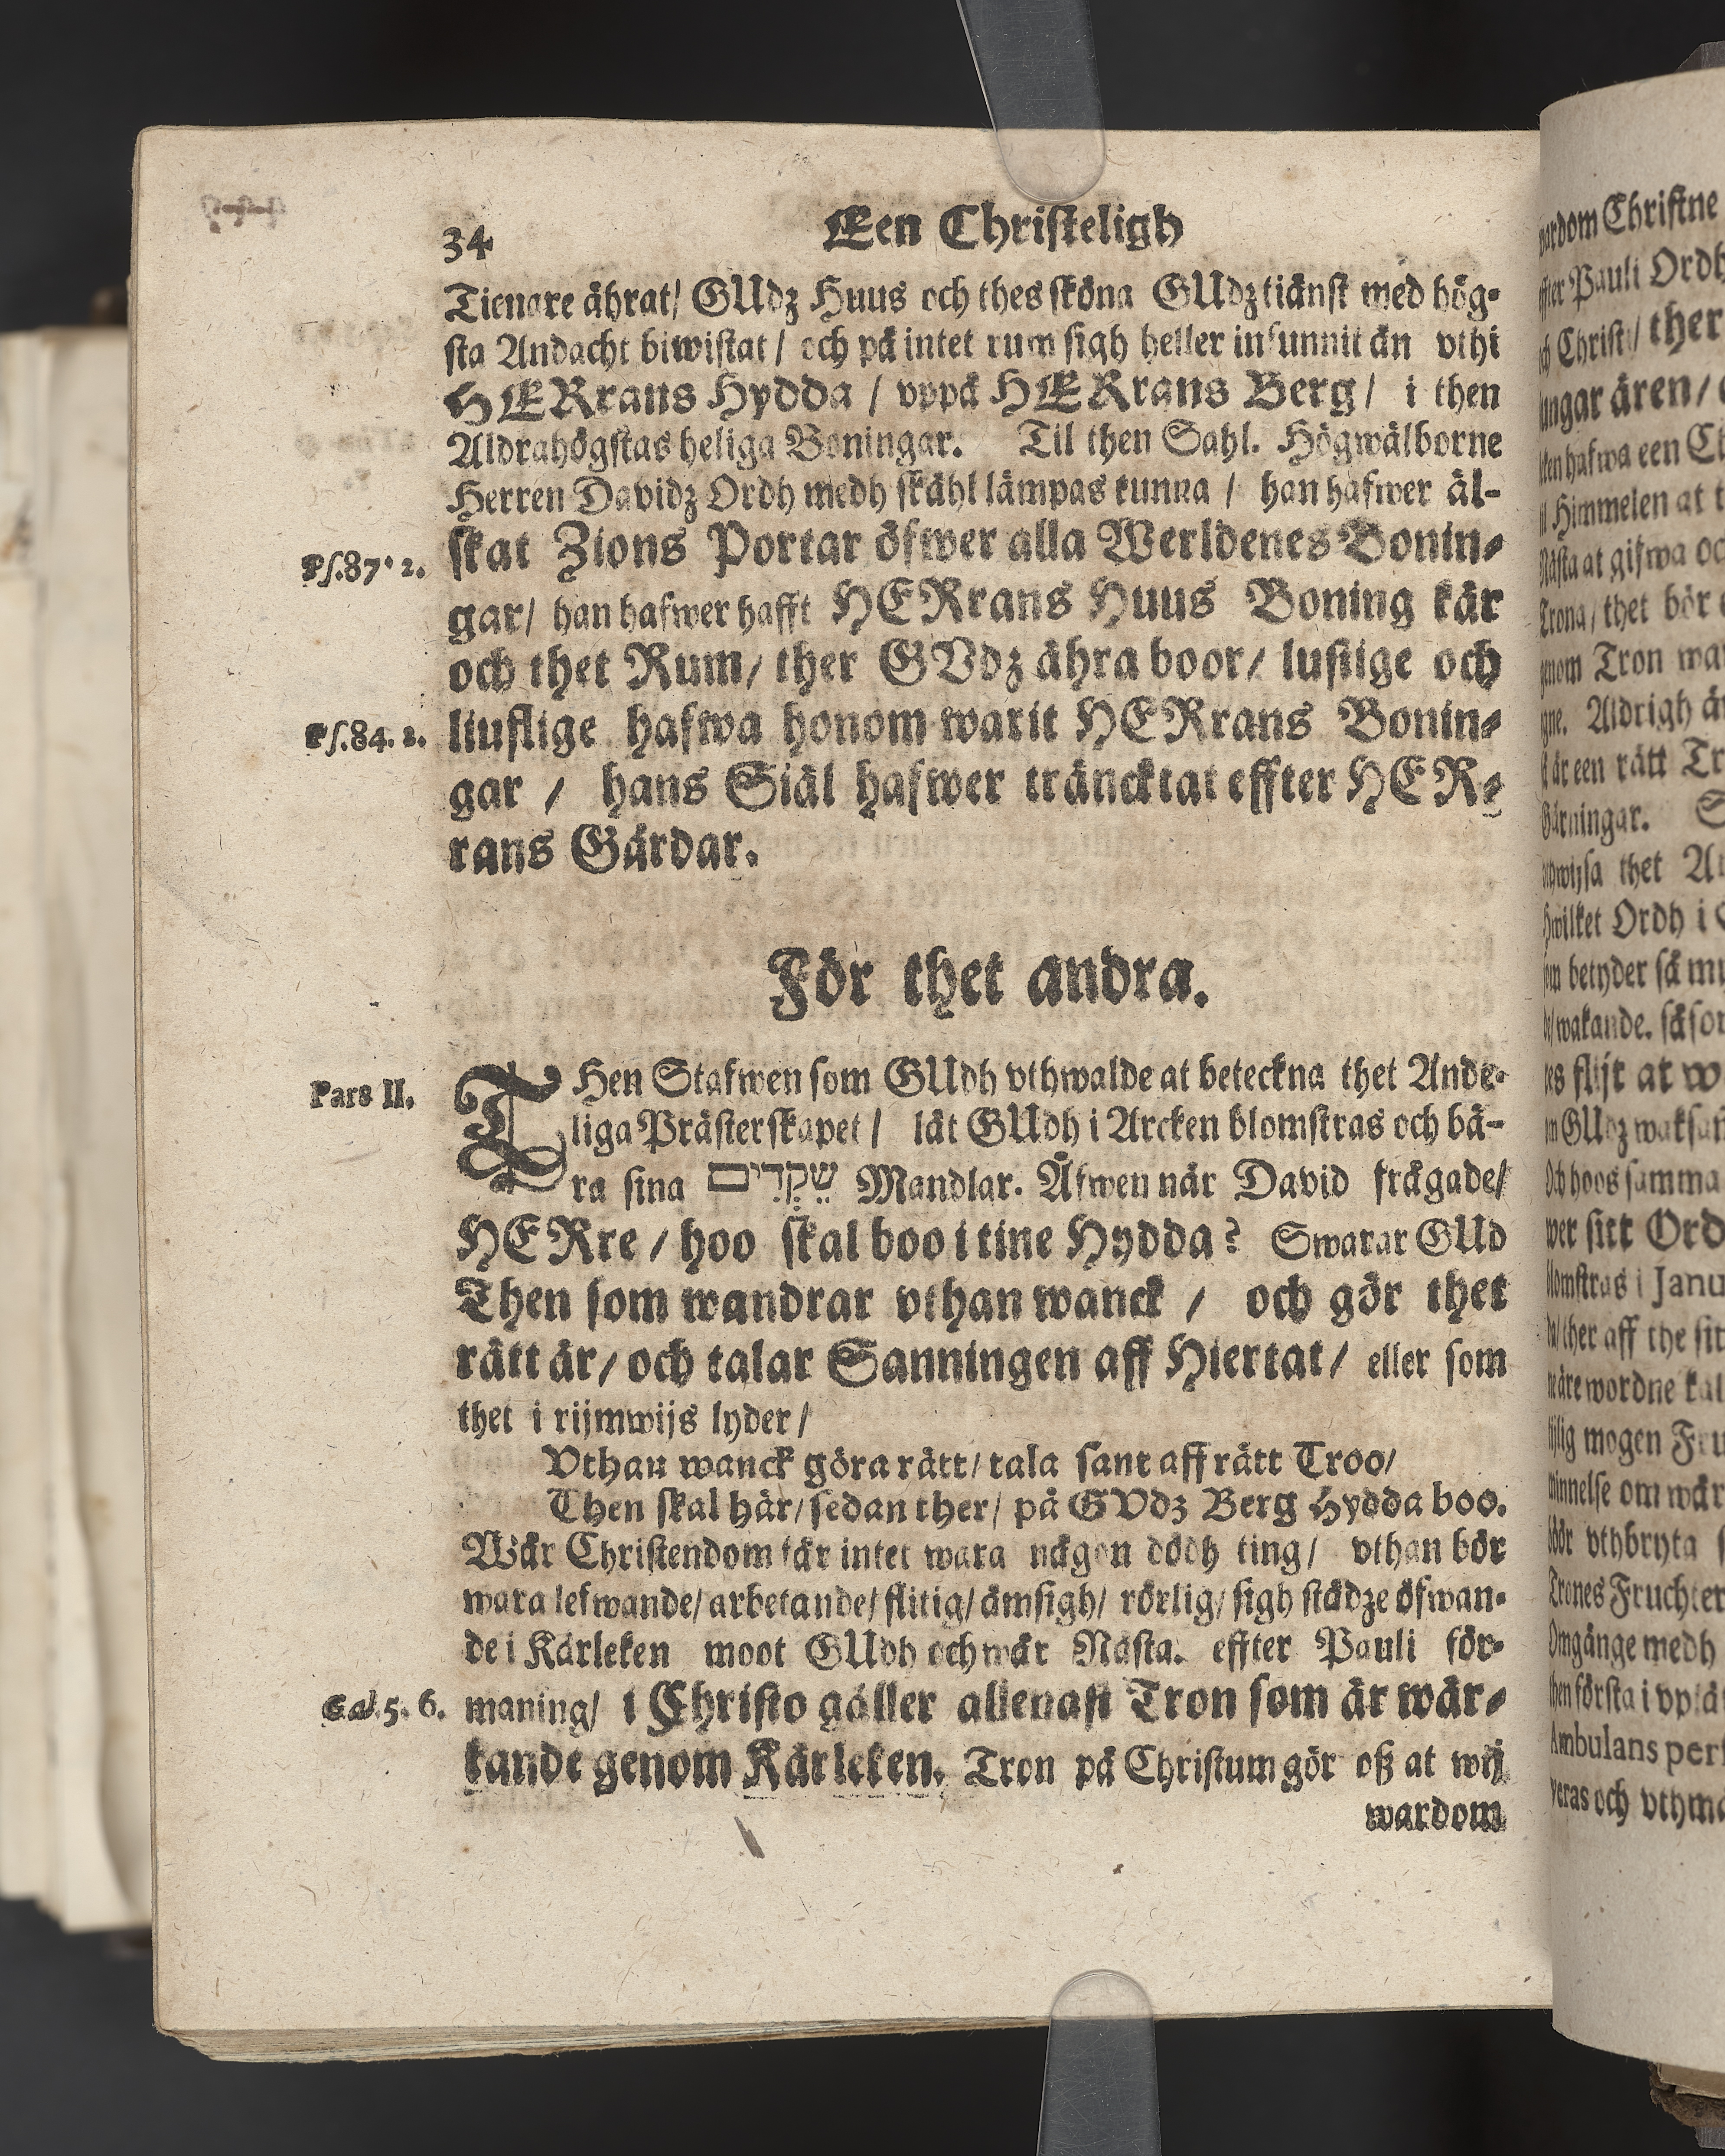 34 Een Christeligh
Tienare ährat/ GUdz Huus och thes sköna GUdztiänst med hög-
sta Andacht biwistat / och på intet rum sigh heller infunnit än vthi
HERrans Hydda / vppå HERrans Berg / i then
Aldrahögstas heliga Boningar. Til then Sahl. Högwälborne
Herren Davidz Ordh medh skähl lämpas kunna / han hafwer äl-
skat Zions Portar öfwer alla Werldenes Bonin-
Ps. 87. 2.
gar/ han hafwer hafft HERrans Huus Boning kär
och thet Rum/ ther GVdz ähra boor/ lustige och
liuflige hafwa honom warit HERrans Bonin-
Ps. 84. 2.
gar / hans Siäl hafwer träncktat effter HER-
rans Gårdar.
För thet andra.
Pars II.
THen Stafwen som GUdh vthwalde at beteckna thet Ande-
liga Prästerskapet / lät GUdh i Arcken blomstras och bä-
ra sina שְׁקֵדִים Mandlar. Äfwen när David frågade/
HERre / hoo skal boo i tine Hydda? Swarar GUd
Then som wandrar vthan wanck / och gör thet
rätt är/ och talar Sanningen aff Hiertat/ eller som
thet i rijmwijs lyder /
Vthan wanck göra rätt/ tala sant aff rätt Troo/
Then skal här/ sedan ther/ på GVdz Berg Hydda boo.
Wår Christendom får intet wara någon dödh ting/ vthan bör
wara lefwande/ arbetande/ flitig/ ämsigh/ rörlig/ sigh städze öfwan-
de i Kärleken moot GUdh och wår Nästa. effter Pauli för-
Gal. 5. 6.
maning/ i Christo gäller allenast Tron som är wär-
kande genom Kärleken. Tron på Christum gör oß at wij
wardom